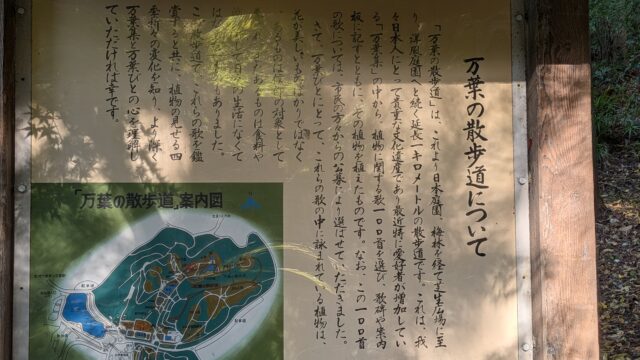 万葉の散歩道について
「万葉の散歩道」は、これより日本庭園、梅林を経て芝生広場に至
り、洋風庭園へと続く延長一キロメートルの散歩道です。これは、我
々日本人にとって貴重な文化遺産であり最近特に愛好者が増加してい
る「万葉集」の中から、植物に関する歌一〇〇首を選び、歌碑や案内
板に記すとともに、その植物を植えたものです。なお、この一〇〇首
の歌については、市民の方々からの公募により選ばせていただきました。
さて、万葉びとにとって、これらの歌の中に詠まれている植物は、
花が美しいものばかりではなく
るものは信仰の対象として
あるものは食料や
として日々の生活になくて
はもありました。
この散歩道で、これらの歌を鑑
賞すると共に、植物の見せる四
季折々の変化を知り、より深く
万葉集と万葉びとの心を理解し
ていただければ幸です。
「万葉の散歩道」案内図